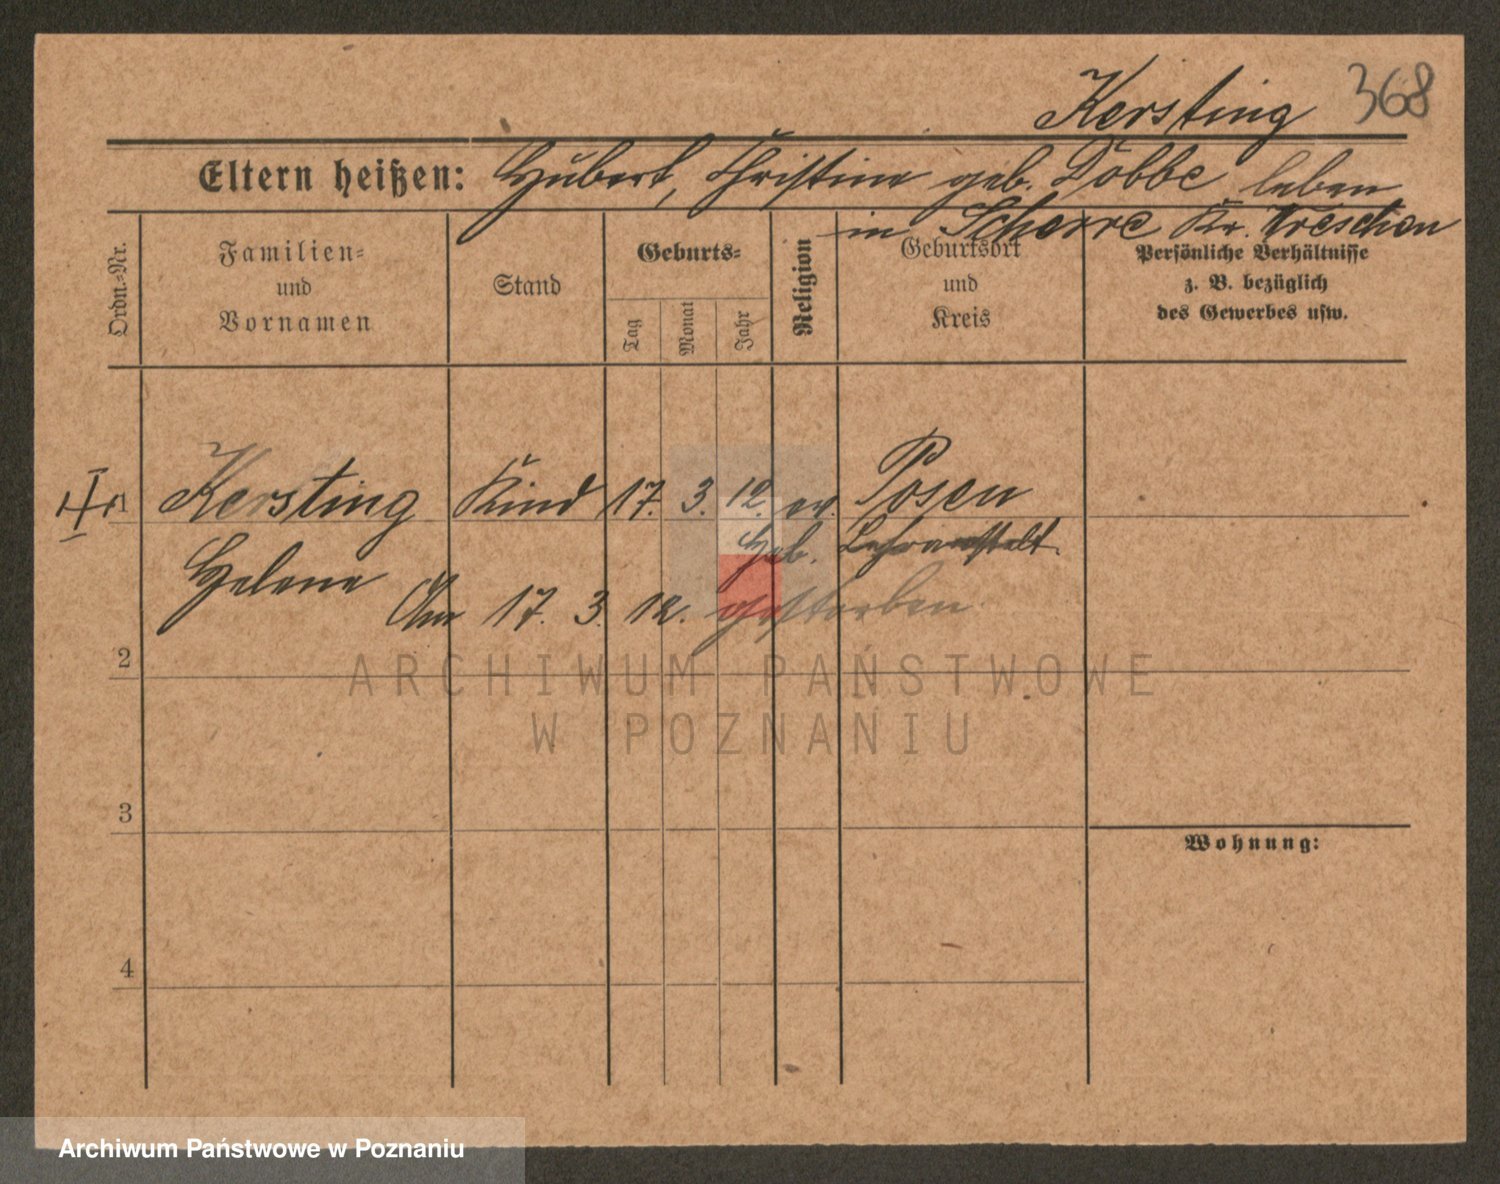 Kersting 368
Eltern heißen: Hubert, Christine geb. Dobbe leben
in Scherre Kr. Wreschen
Ordn.-Nr.
Familien-
und
Vornamen
Stand
Geburts-
Tag
Monat
Jahr
Religion
Geburtsort
und
Kreis
Persönliche Verhältnisse
z. B. bezüglich
des Gewerbes usw.
1 Kersting Kind 17. 3. 12. ev. Posen
Helene Heb. Lehranstalt.
Am 17. 3. 12. gestorben
2
3
4
Wohnung:
ARCHIWUM PAŃSTWOWE
W POZNANIU
Archiwum Państwowe w Poznaniu